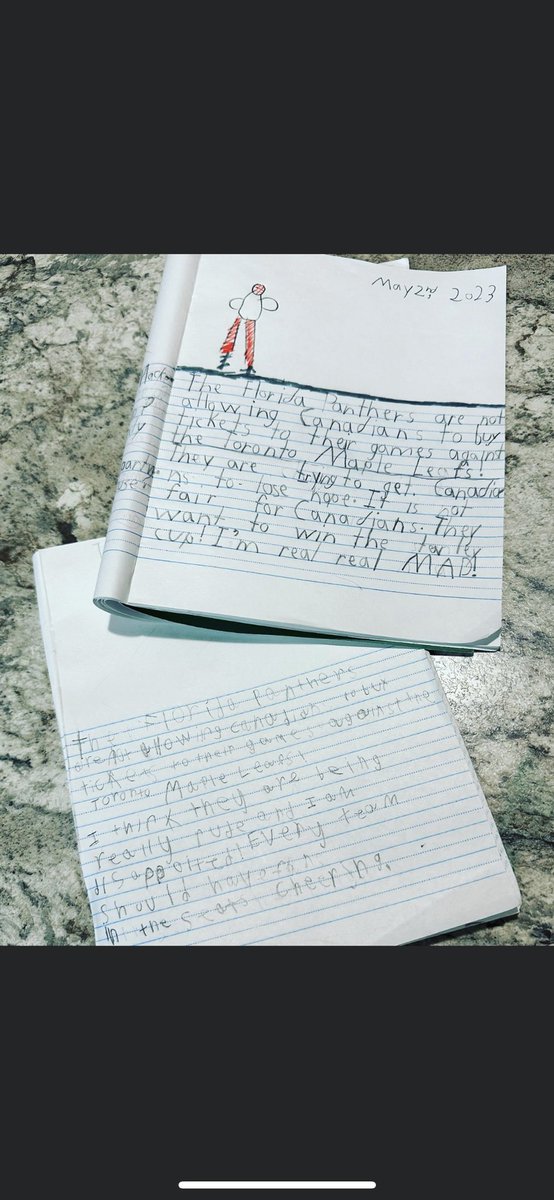 May 2nd, 2023
The Florida Panthers are not
allowing Canadians to buy
tickets to their games againt
the Toronto Maple Leafs!
They are trying to get Canadia
ns to lose hope. It is not
fair for Canadians. They
want to win the
cup! I'm real real MAD!
The Florida Panthers
are allowing canadian to bux
tickets to their games against the
Toronto Maple Leafs!
I think they are being
really rude and I am
disappoited! Every team
should have fan
in the seats cheering.